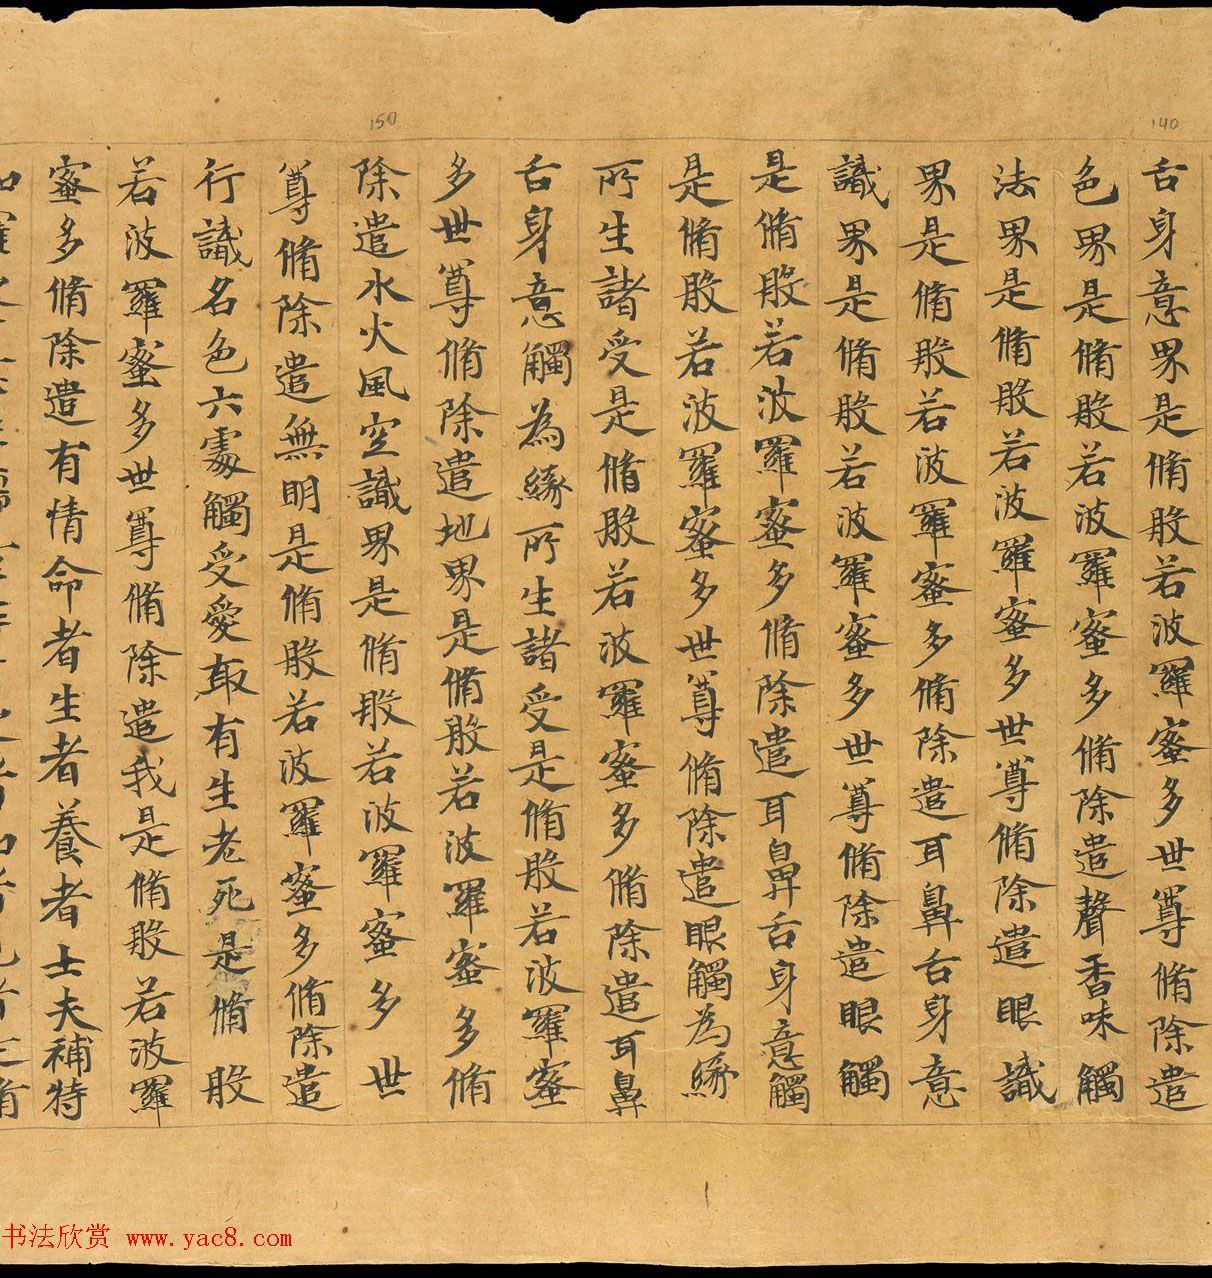 140
150
舌身意界是脩般若波羅蜜多世尊脩除遣
色界是脩般若波羅蜜多脩除遣聲香味觸
法界是脩般若波羅蜜多世尊脩除遣眼識
界是脩般若波羅蜜多脩除遣耳鼻舌身意
識界是脩般若波羅蜜多世尊脩除遣眼觸
是脩般若波羅蜜多脩除遣耳鼻舌身意觸
是脩般若波羅蜜多世尊脩除遣眼觸為緣
所生諸受是脩般若波羅蜜多脩除遣耳鼻
舌身意觸為緣所生諸受是脩般若波羅蜜
多世尊脩除遣地界是脩般若波羅蜜多脩
除遣水火風空識界是脩般若波羅蜜多世
尊脩除遣無明是脩般若波羅蜜多脩除遣
行識名色六處觸受愛取有生老死是脩般
若波羅蜜多世尊脩除遣我是脩般若波羅
蜜多脩除遣有情命者生者養者士夫補特
书法欣赏 www.yac8.com